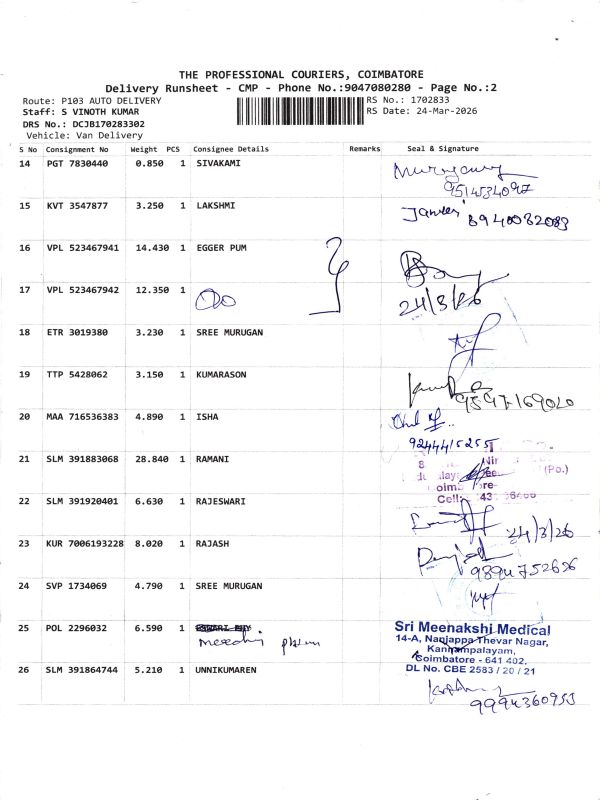 THE PROFESSIONAL COURIERS, COIMBATORE
Delivery Runsheet - CMP - Phone No.:9047080280 - Page No.:2
Route: P103 AUTO DELIVERY
RS No.: 1702833
Staff: S VINOTH KUMAR
RS Date: 24-Mar-2026
DRS No.: DCJB170283302
Vehicle: Van Delivery
S No Consignment No Weight PCS Consignee Details Remarks Seal & Signature
14 PGT 7830440 0.850 1 SIVAKAMI
9514534097
15 KVT 3547877 3.250 1 LAKSHMI
8940082083
16 VPL 523467941 14.430 1 EGGER PUM
17 VPL 523467942 12.350 1
24/3/26
18 ETR 3019380 3.230 1 SREE MURUGAN
19 TTP 5428062 3.150 1 KUMARASON
9597169020
20 MAA 716536383 4.890 1 ISHA
9244415255
21 SLM 391883068 28.840 1 RAMANI
(Po.)
22 SLM 391920401 6.630 1 RAJESWARI
24/3/26
23 KUR 7006193228 8.020 1 RAJASH
9894752626
24 SVP 1734069 4.790 1 SREE MURUGAN
25 POL 2296032 6.590 1
Sri Meenakshi Medical
14-A, Nanjappa Thevar Nagar,
Kannampalayam,
Coimbatore - 641 402.
DL No. CBE 2583 / 20 / 21
26 SLM 391864744 5.210 1 UNNIKUMAREN
9994360953